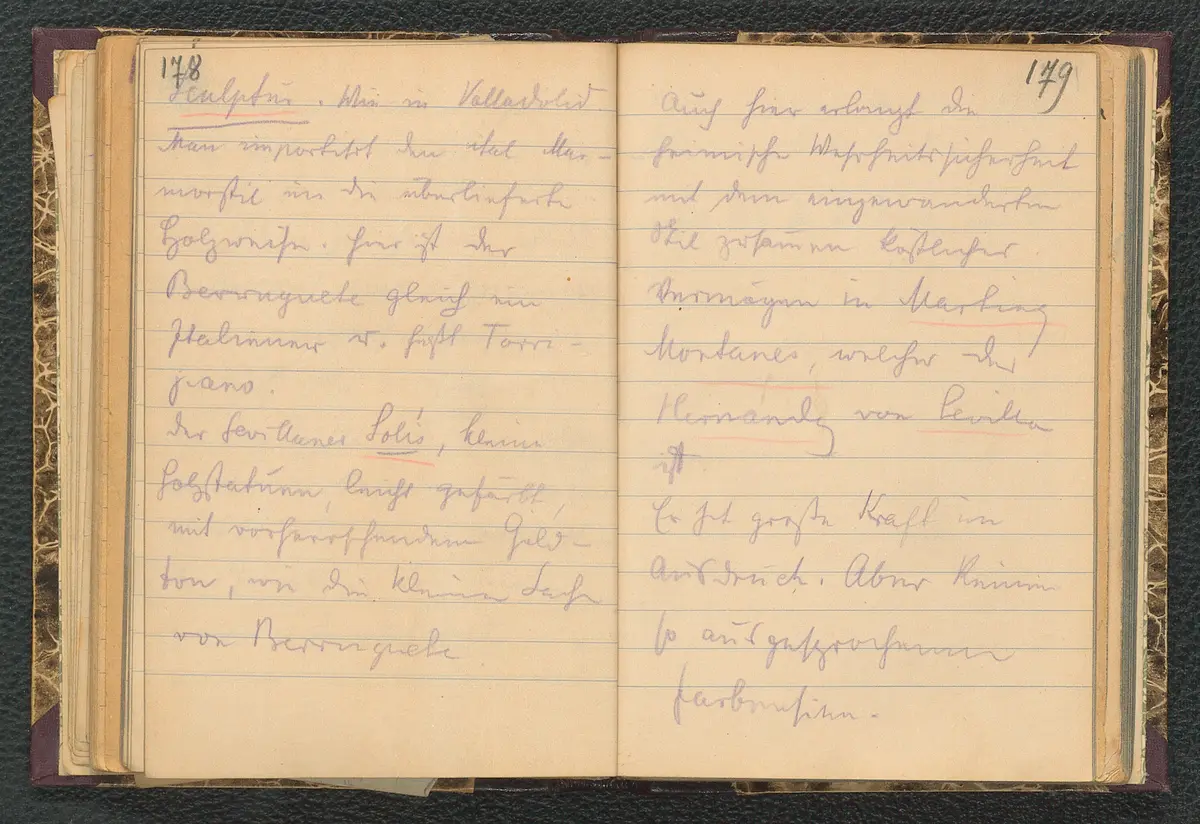 178
Sculptur. Wie in Valladolid.
Man importirt den ital Mar-
morstil in die überlieferte
Holzweise. Hier ist der
Berruguete gleich ein
Italiener u. heißt Torri-
giano.
der Sevillaner Solís, kleine
Holzstatuen, leicht gefärbt,
mit vorherrschendem Gold-
ton, wie die kleinen Sach
von Berruguete
179
Auch hier erlangt die
heimische Wahrheitssicherheit
mit dem eingewanderten
Stil zusammen köstliches
Vermögen in Martinez
Montanes, welcher der
Hernández von Sevilla
ist
Er hat große Kraft im
Ausdruck. Aber keinen
so ausgesprochenen
Farbensinn.